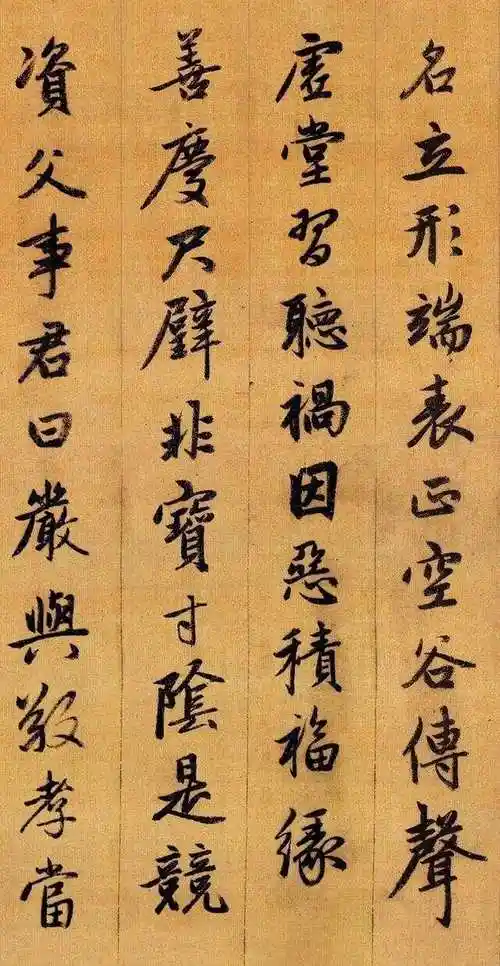 名立形端表正空谷傳聲
虛堂習聽禍因惡積福緣
善慶尺璧非寶寸陰是競
資父事君曰嚴與敬孝當